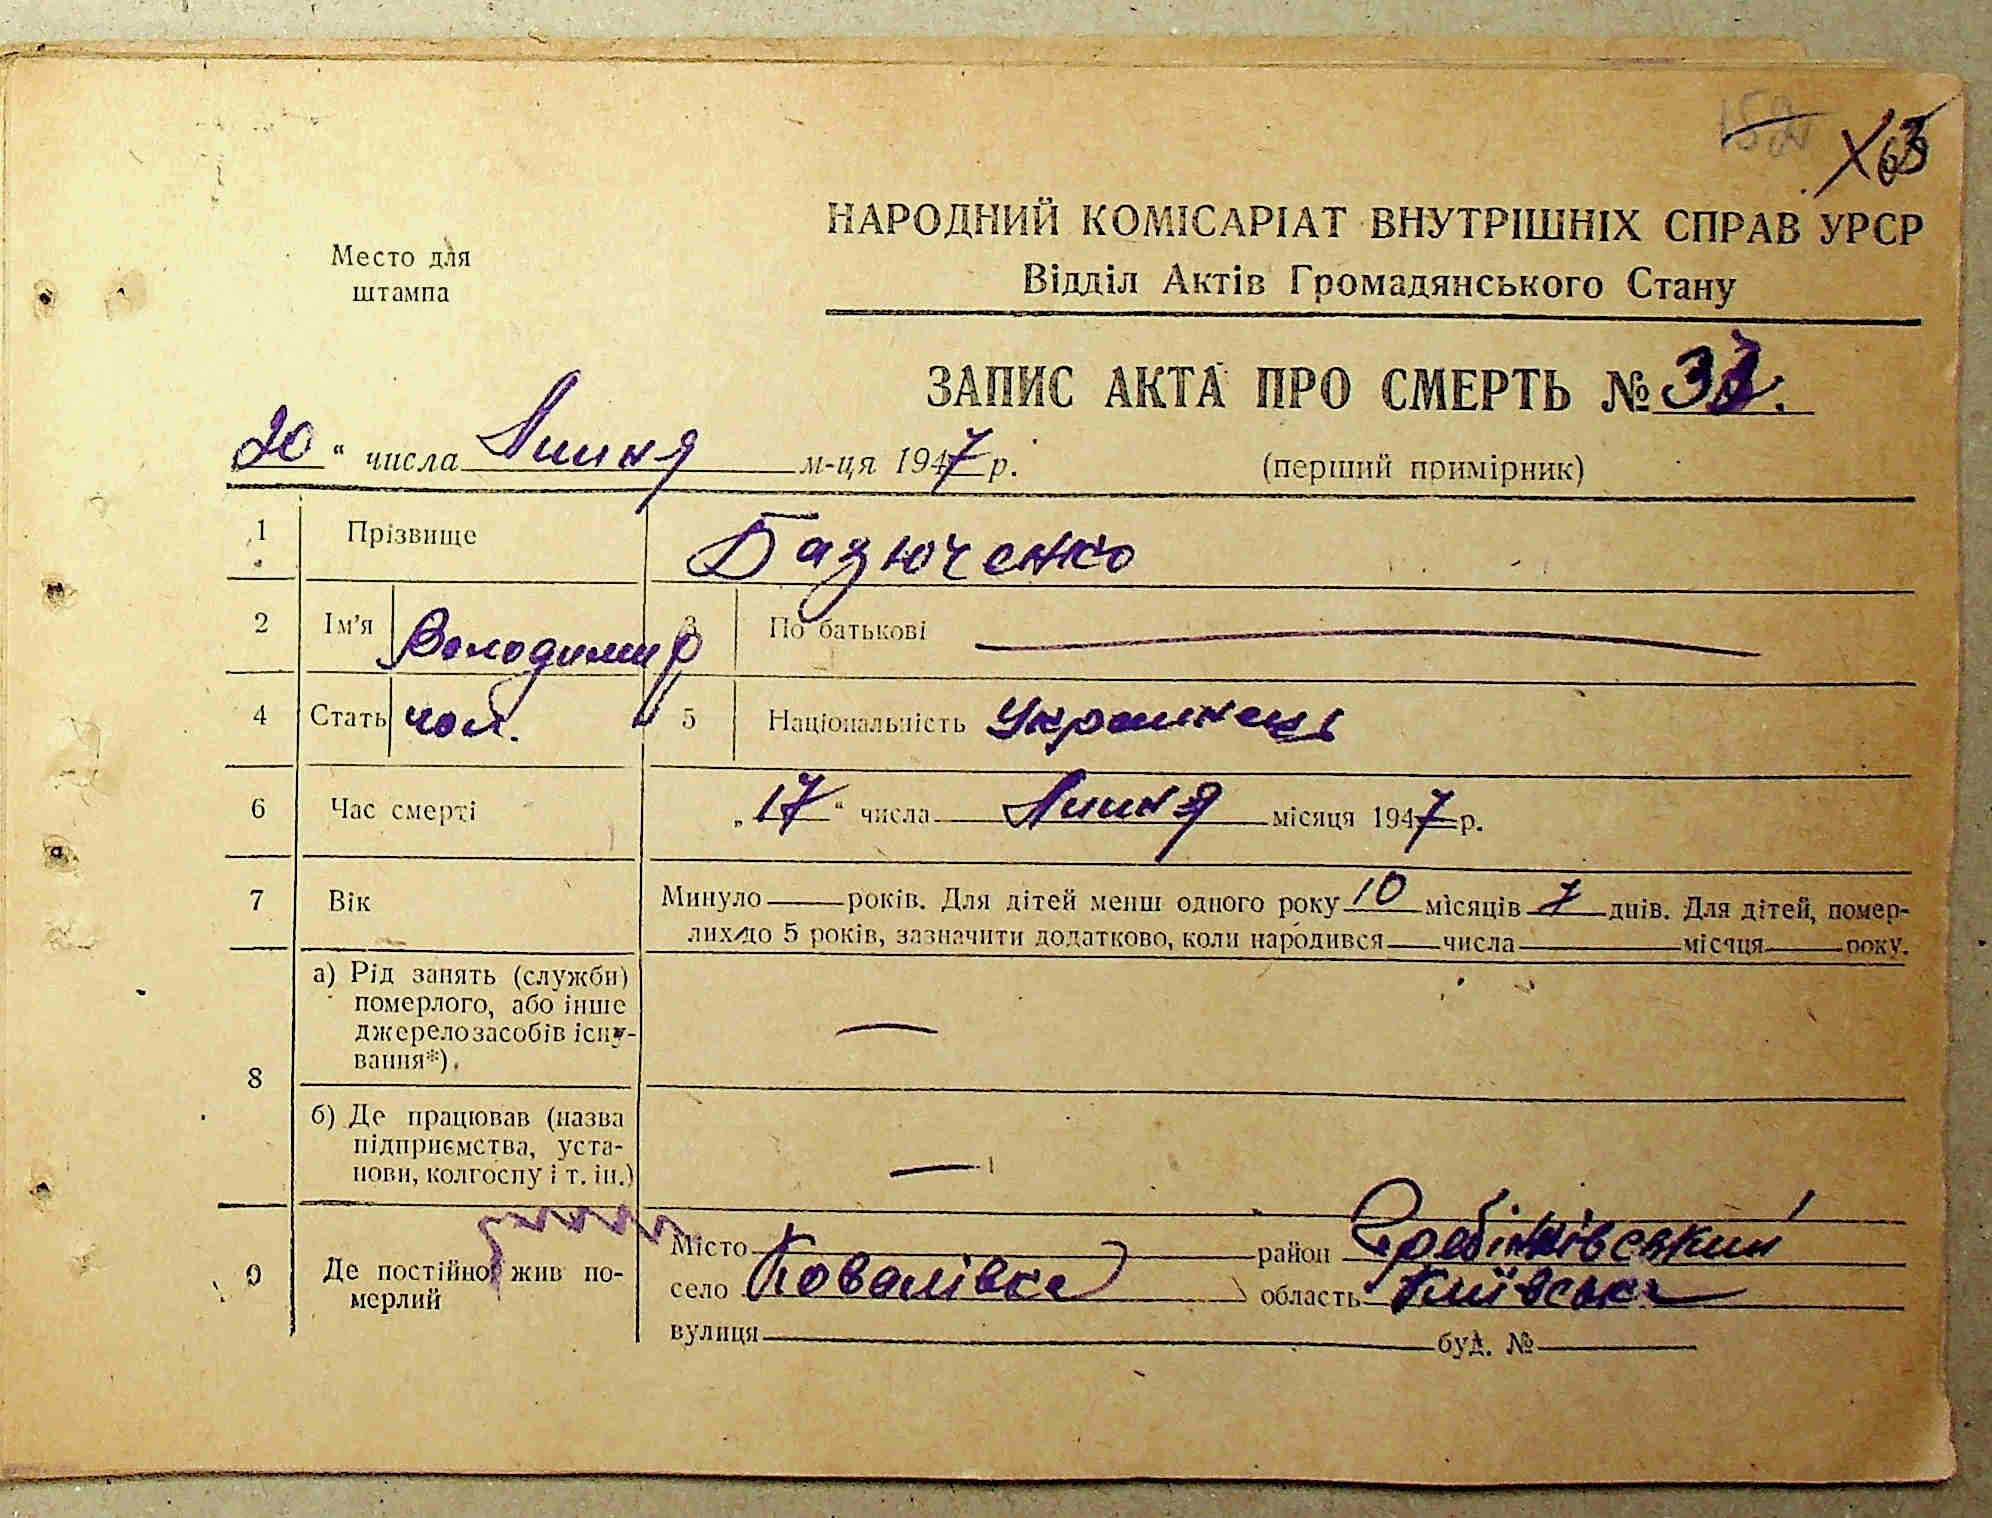 НАРОДНИЙ КОМІСАРІАТ ВНУТРІШНІХ СПРАВ УРСР
Відділ Актів Громадянського Стану
Место для
штампа
ЗАПИС АКТА ПРО СМЕРТЬ №
20 “ числа Липня м-ця 1947 р.
(перший примірник)
1 Прізвище Базюченко
2 Ім’я Володимир 3 По батькові —
4 Стать чол. 5 Національність Українець
6 Час смерті „17“ числа Липня місяця 1947 р.
7 Вік Минуло — років. Для дітей менш одного року 10 місяців 7 днів. Для дітей, помер-
лих до 5 років, зазначити додатково, коли народився числа місяця року.
8 а) Рід занять (служби)
померлого, або інше
джерело засобів існу-
вання*). —
б) Де працював (назва
підприємства, уста-
нови, колгоспу і т. ін.) —
9 Де постійно жив по-
мерлий
Місто район Гребінківський
село Ковалівка область Київська
вулиця буд. №